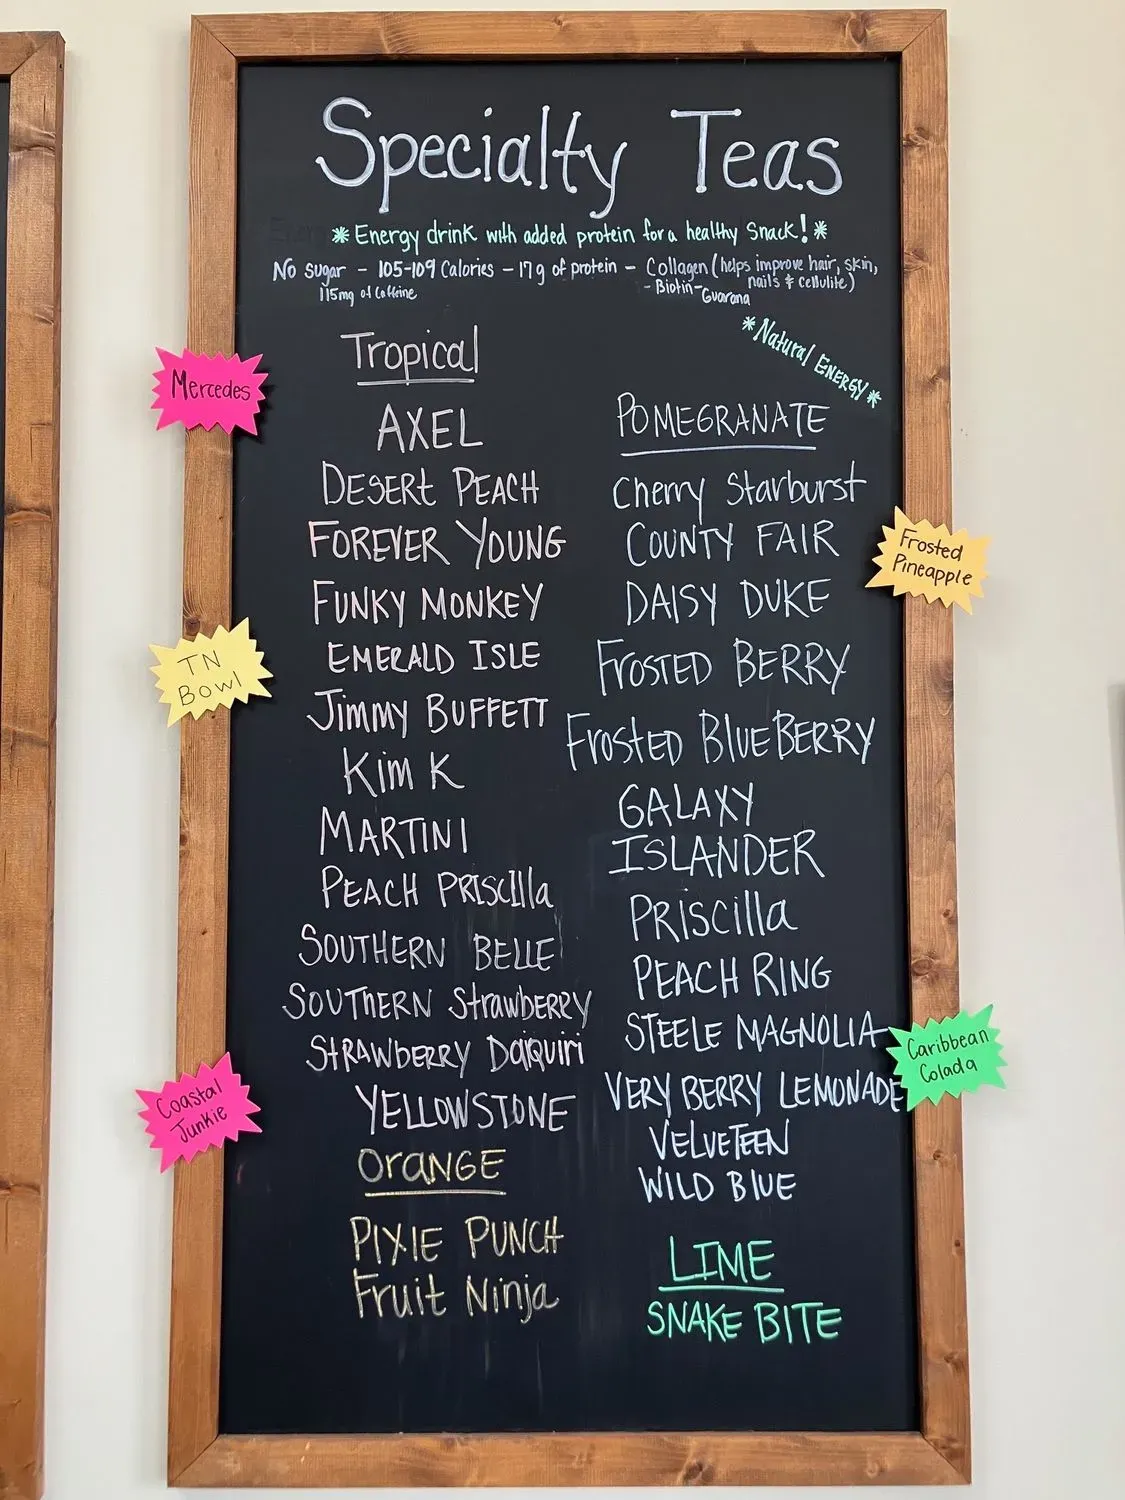 Specialty Teas
* Energy drink with added protein for a healthy Snack! *
No Sugar - 105-109 Calories - 17g of protein - Collagen (helps improve hair, skin,
nails & cellulite)
115mg of Caffeine
- Biotin - Guarana
* Natural ENERGY *
Tropical
AXEL
DESERT PEACH
FOREVER YOUNG
FUNKY MONKEY
EMERALD ISLE
Jimmy BUFFETT
Kim K
MARTINI
PEACH PRISCIlla
SOUTHERN BELLE
SOUThERN Strawberry
STRAWbERRY DaiQuiri
YELLOWSTONE
OrANGE
PIXIE PUNCH
Fruit Ninja
POMEGRANATE
Cherry Starburst
COUNTY FAIR
DAISY DUKE
FrOSTED BERRY
FrOSTED BlUEBERRY
GALAXY
ISLANDER
PRIScilla
PEACH RING
STEELE MAGNOLIA
VERY BERRY LEMONADE
VELVETEEN
WILD BlUE
LIME
SNAKE BITE
Mercedes
TN
Bowl
Coastal
Junkie
Frosted
Pineapple
Caribbean
Colada